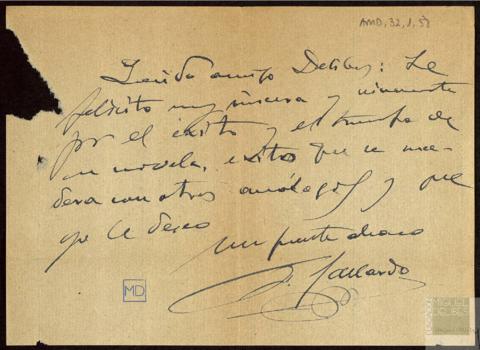 AMD, 32, 1, 58
Querido amigo Delibes: Le
felicito muy sincera y vivamente
por el éxito y el triunfo de
su novela, éxitos que se suce-
derá con otros análogos y que
yo le deseo
Un fuerte abrazo
Gallardo
MD
MIGUEL
DELIBES